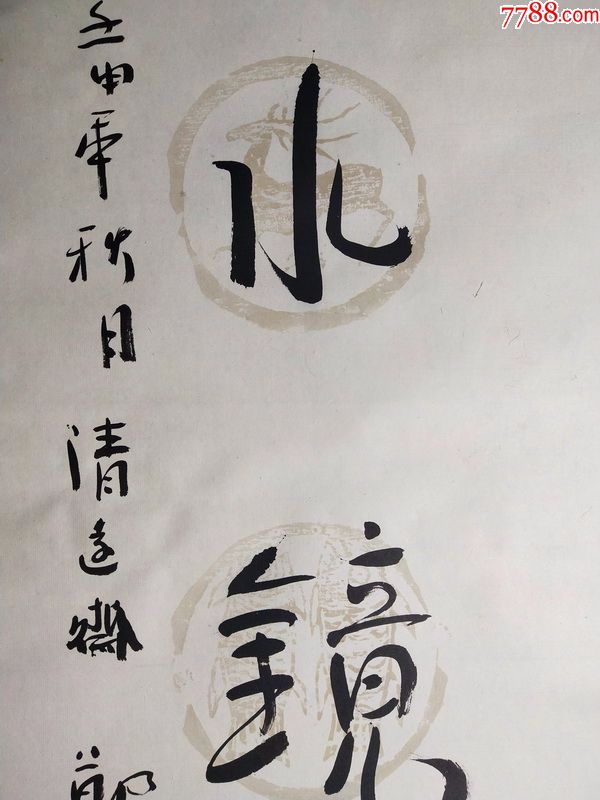 7788.com
水鏡
壬申年秋月清遠